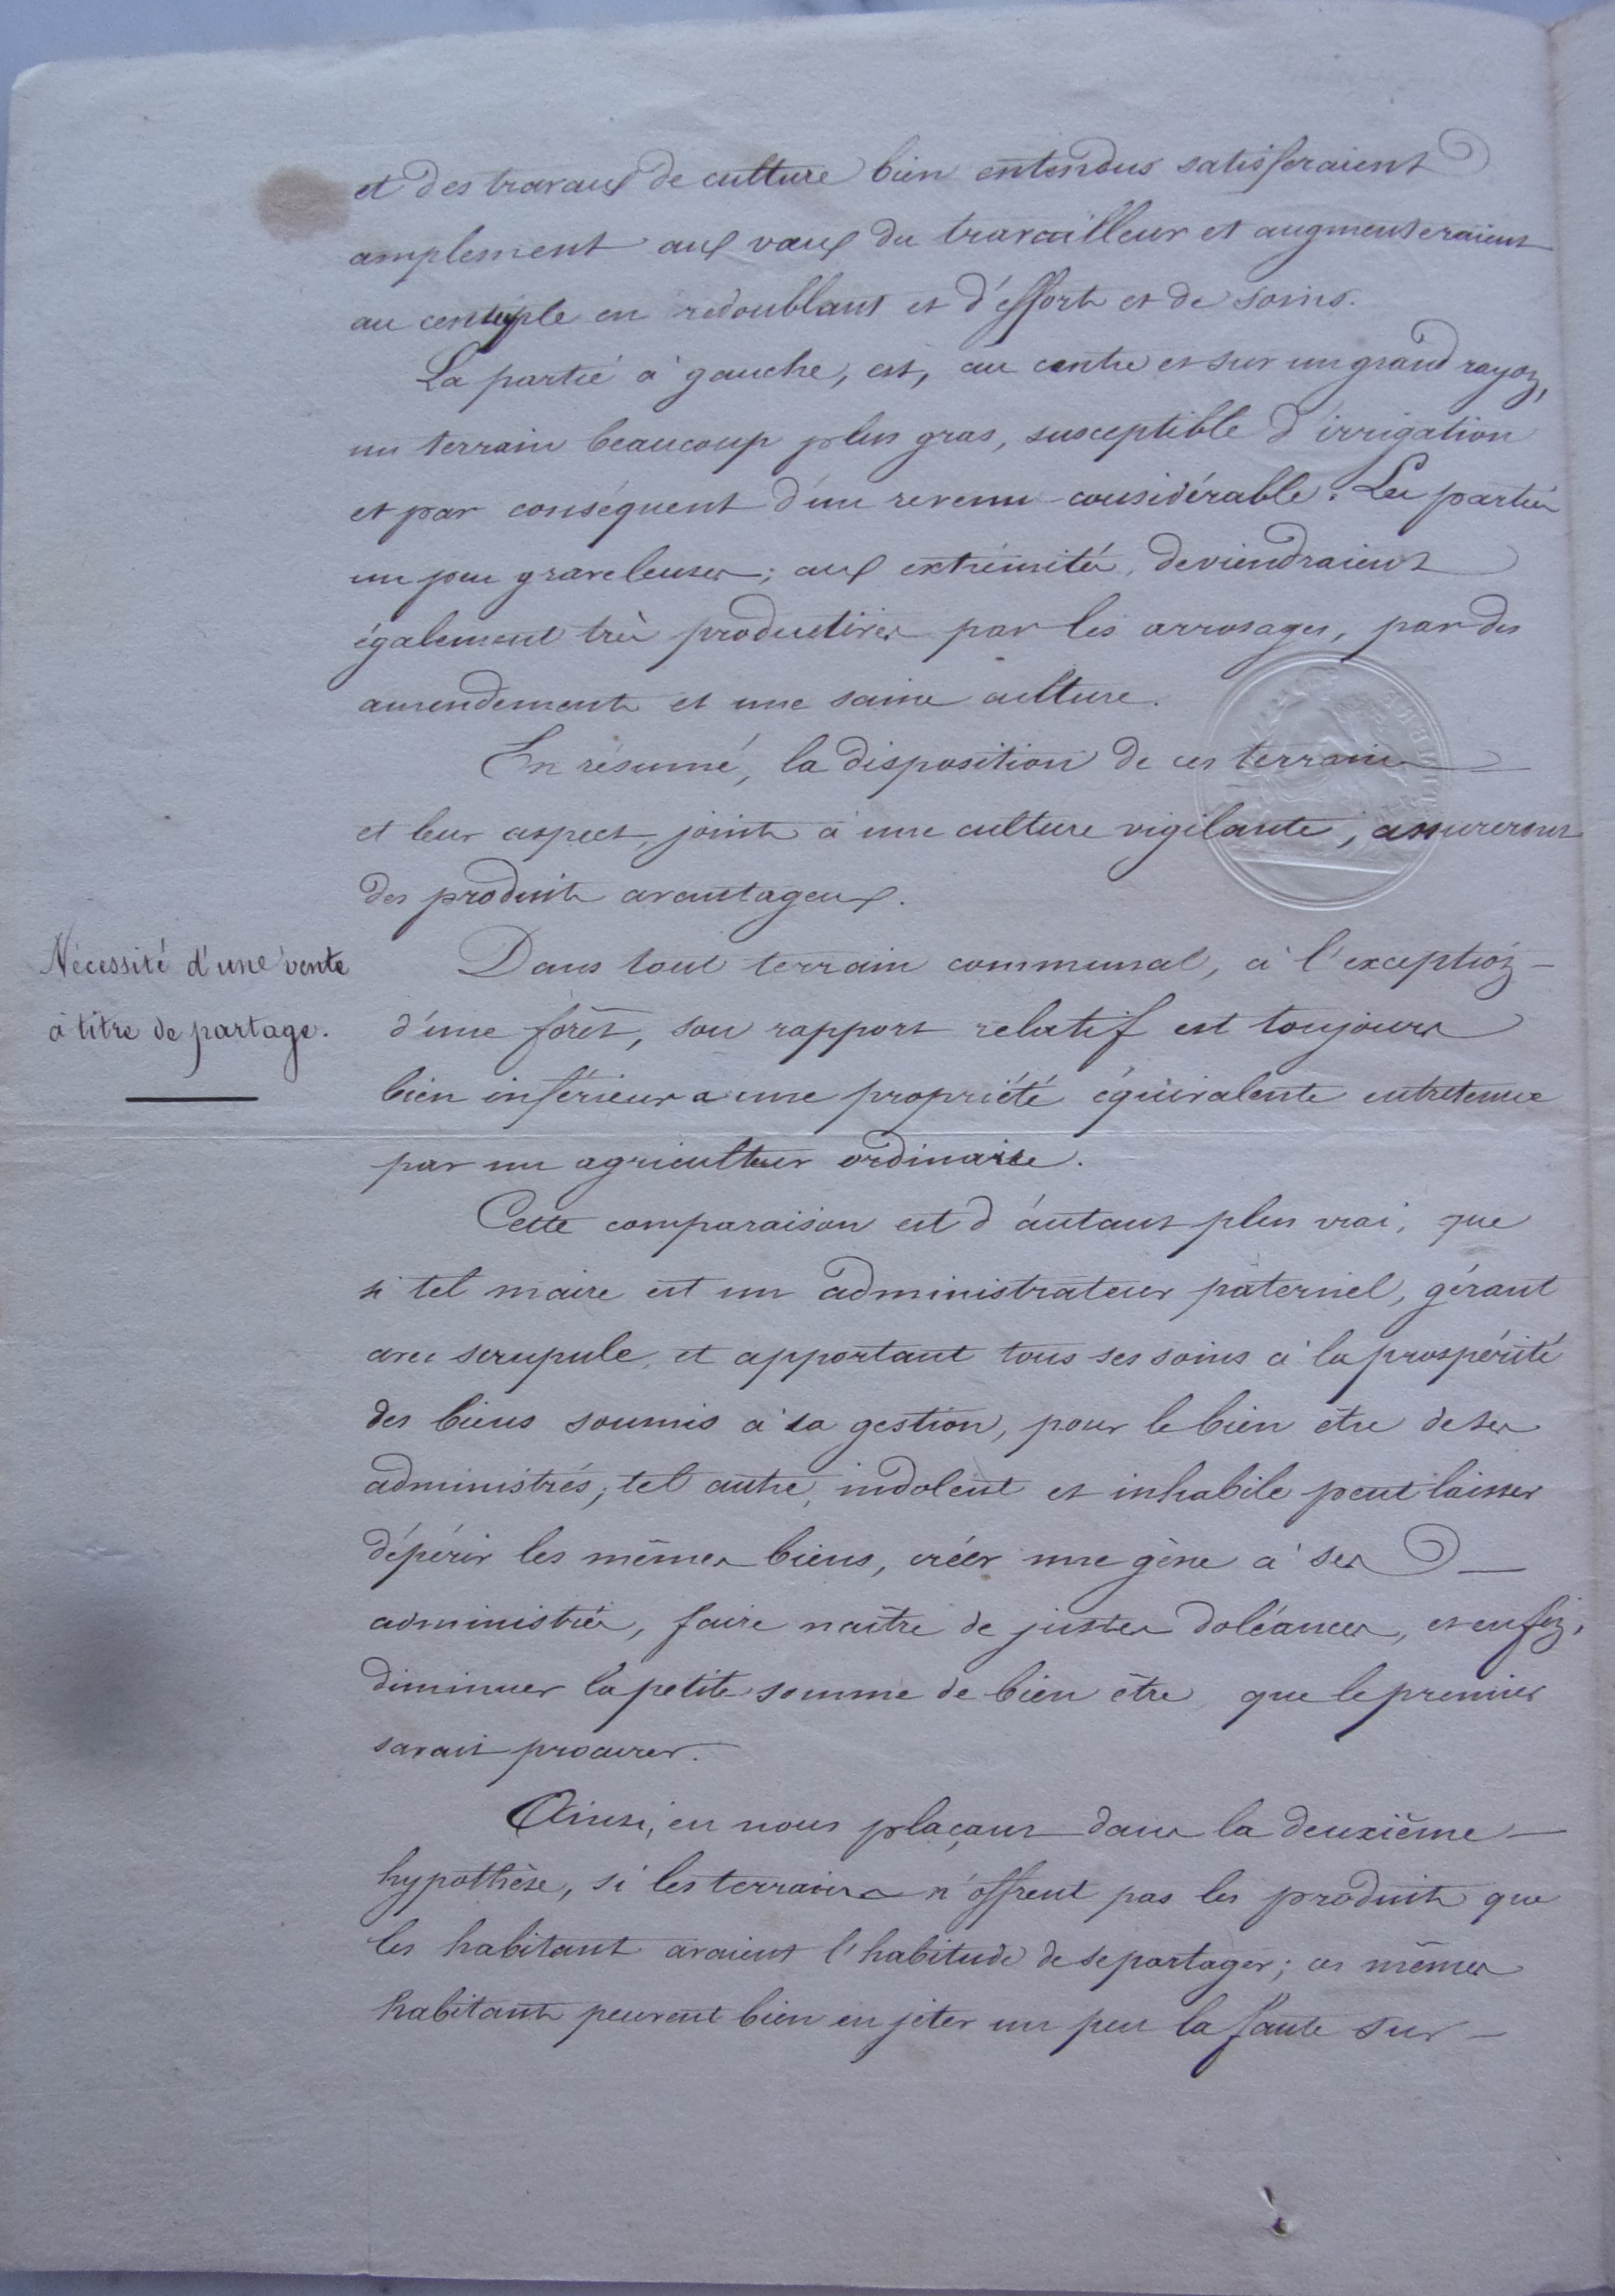 et des travaux de culture bien entendus satisferaient
amplement aux vœux du travailleur et augmenteraient
au centuple en redoublant et d'efforts et de soins.
La partie à gauche, est, au centre et sur un grand rayon,
un terrain beaucoup plus gras, susceptible d'irrigation
et par conséquent d'un revenu considérable. Les parties
un peu graveleuses; aux extrémités, deviendraient
également très productives par les arrosages, par des
amendements et une saine culture.
En résumé, la disposition de ces terrains
et leur aspect, joints à une culture vigilante, assureront
des produits avantageux.
Nécessité d'une vente
à titre de partage.
Dans tout terrain communal, à l'exception
d'une forêt, son rapport relatif est toujours
bien inférieur a une propriété équivalente entretenue
par un agriculteur ordinaire.
Cette comparaison est d'autant plus vrai, que
si tel maire est un administrateur paternel, gérant
avec scrupule, et apportant tous ses soins à la prospérité
des biens soumis à sa gestion, pour le bien être de ses
administrés; tel autre, indolent et inhabile peut laisser
dépérir les mêmes biens, créer une gène à ses
administrés, faire naître de justes doléances, et enfin,
diminuer la petite somme de bien être que le premier
savait procurer.
Ainsi, en nous plaçant dans la deuxième
hypothèse, si les terrains n'offrent pas les produits que
les habitant avaient l'habitude de se partager; ces mêmes
habitants peuvent bien en jeter un peu la faute sur